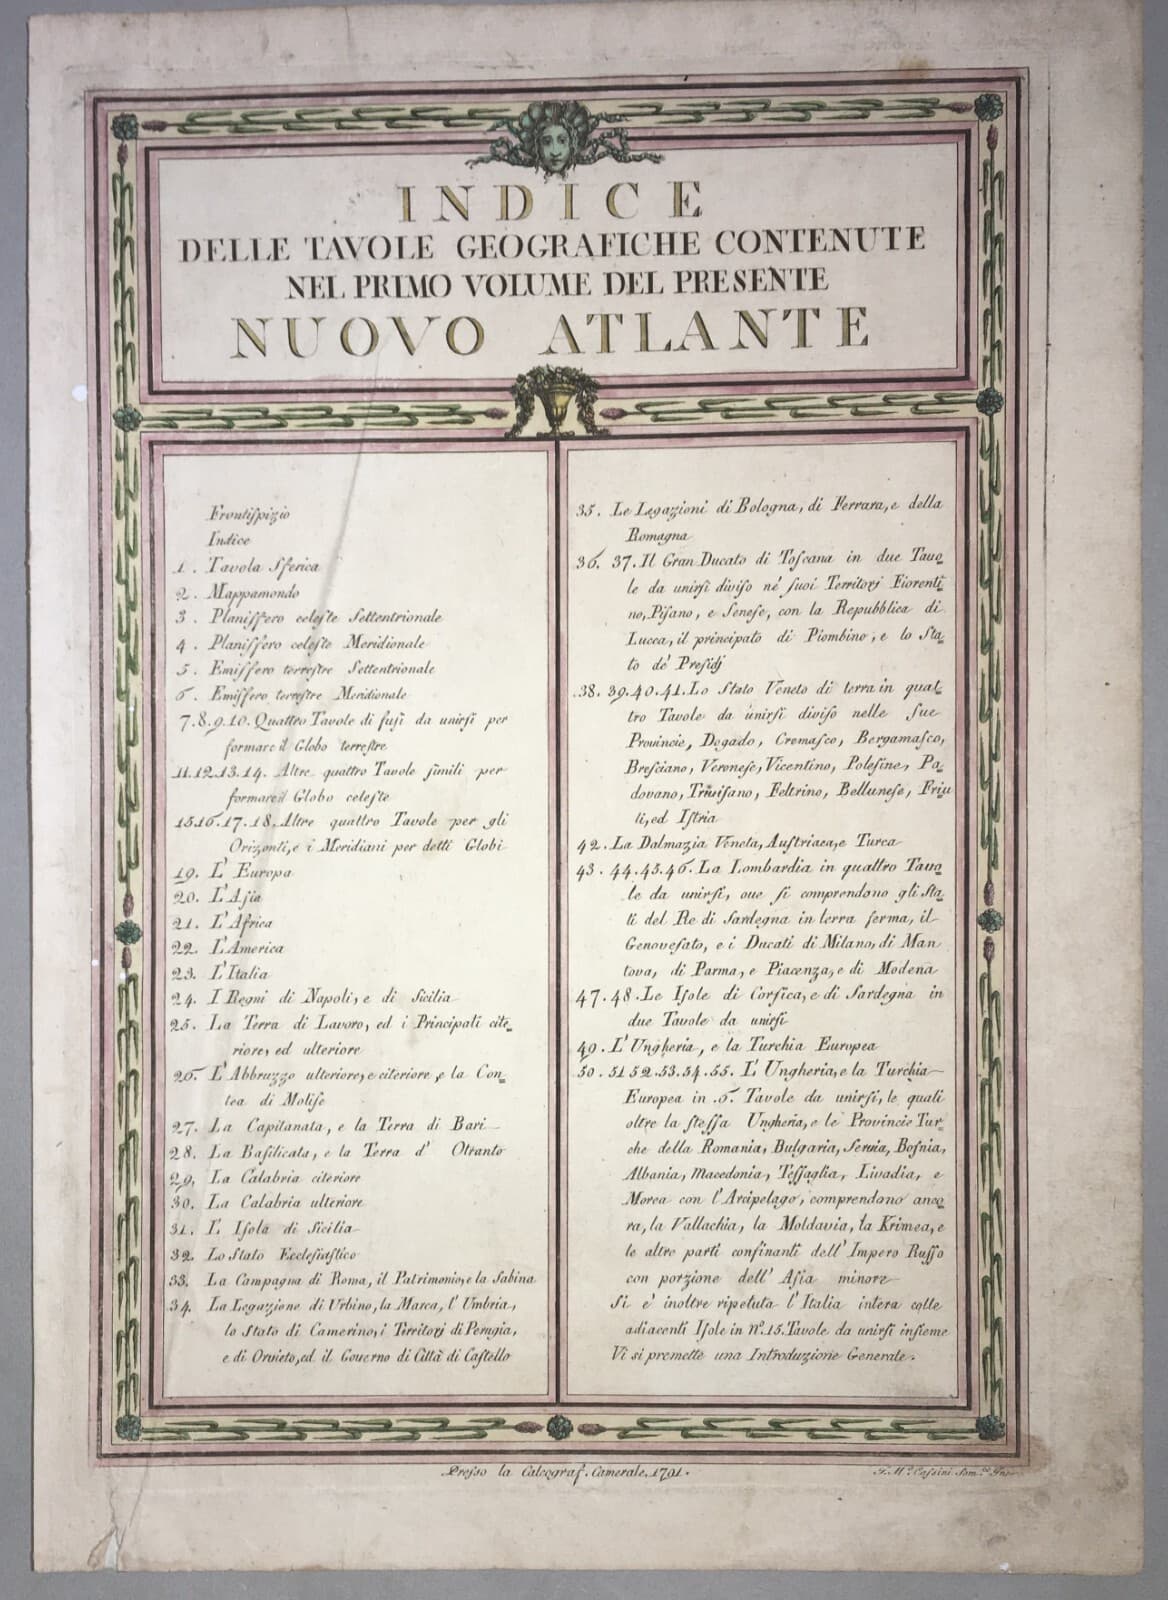 INDICE
DELLE TAVOLE GEOGRAFICHE CONTENUTE
NEL PRIMO VOLUME DEL PRESENTE
NUOVO ATLANTE
Frontiſpizio
Indice
1. Tavola Sferica
2. Mappamondo
3. Planiſfero celeſte Settentrionale
4. Planiſfero celeſte Meridionale
5. Emiſfero terreſtre Settentrionale
6. Emiſfero terreſtre Meridionale
7.8.9.10. Quattro Tavole di fuſi da unirſi per
formare il Globo terreſtre
11.12.13.14. Altre quattro Tavole ſimili per
formare il Globo celeſte
15.16.17.18. Altre quattro Tavole per gli
Orizonti, e i Meridiani per detti Globi
19. L'Europa
20. L'Aſia
21. L'Africa
22. L'America
23. L'Italia
24. I Regni di Napoli, e di Sicilia
25. La Terra di Lavoro, ed i Principati cite-
riore, ed ulteriore
26. L'Abbruzzo ulteriore, e citeriore, e la Con-
tea di Moliſe
27. La Capitanata, e la Terra di Bari
28. La Baſilicata, e la Terra d' Otranto
29. La Calabria citeriore
30. La Calabria ulteriore
31. L' Iſola di Sicilia
32. Lo Stato Eccleſiaſtico
33. La Campagna di Roma, il Patrimonio, e la Sabina
34. La Legazione di Urbino, la Marca, l' Umbria,
lo Stato di Camerino, i Territorj di Perugia,
e di Orvieto, ed il Governo di Città di Caſtello
35. Le Legazioni di Bologna, di Ferrara, e della
Romagna
36. 37. Il Gran Ducato di Toſcana in due Tavo-
le da unirſi diviſo né ſuoi Territorj Fiorenti-
no, Piſano, e Seneſe, con la Repubblica di
Lucca, il principato di Piombino, e lo Sta-
to de' Preſidj
38. 39. 40. 41. Lo Stato Veneto di terra in quat-
tro Tavole da unirſi diviſo nelle ſue
Provincie, Dogado, Cremaſco, Bergamaſco,
Breſciano, Veroneſe, Vicentino, Poleſine, Pa-
dovano, Treviſano, Feltrino, Belluneſe, Friu
li, ed Iſtria
42. La Dalmazia Veneta, Auſtriaca, e Turca
43. 44. 45. 46. La Lombardia in quattro Tavo-
le da unirſi, oue ſi comprendono gli Sta-
ti del Re di Sardegna in terra ferma, il
Genoveſato, e i Ducati di Milano, di Man
tova, di Parma, e Piacenza, e di Modena
47. 48. Le Iſole di Corſica, e di Sardegna in
due Tavole da unirſi
49. L'Ungheria, e la Turchia Europea
50. 51 52. 53. 54. 55. L' Ungheria, e la Turchia
Europea in .6. Tavole da unirſi, le quali
oltre la ſteſſa Ungheria, e le Provincie Tur-
che della Romania, Bulgaria, Servia, Boſnia,
Albania, Macedonia, Teſſaglia, Livadia, e
Morea con l'Arcipelago, comprendono anco-
ra, la Vallachia, la Moldavia, la Krimea, e
le altre parti confinanti dell' Impero Ruſſo
con porzione dell' Aſia minore
Si è inoltre ripetuta l'Italia intera colle
adiacenti Iſole in nº.15. Tavole da unirſi inſieme
Vi si premette una Introduzione Generale.
Preſſo la Calcograf. Camerale. 1791.
G. Mª. Caſſini Som.co Inc.